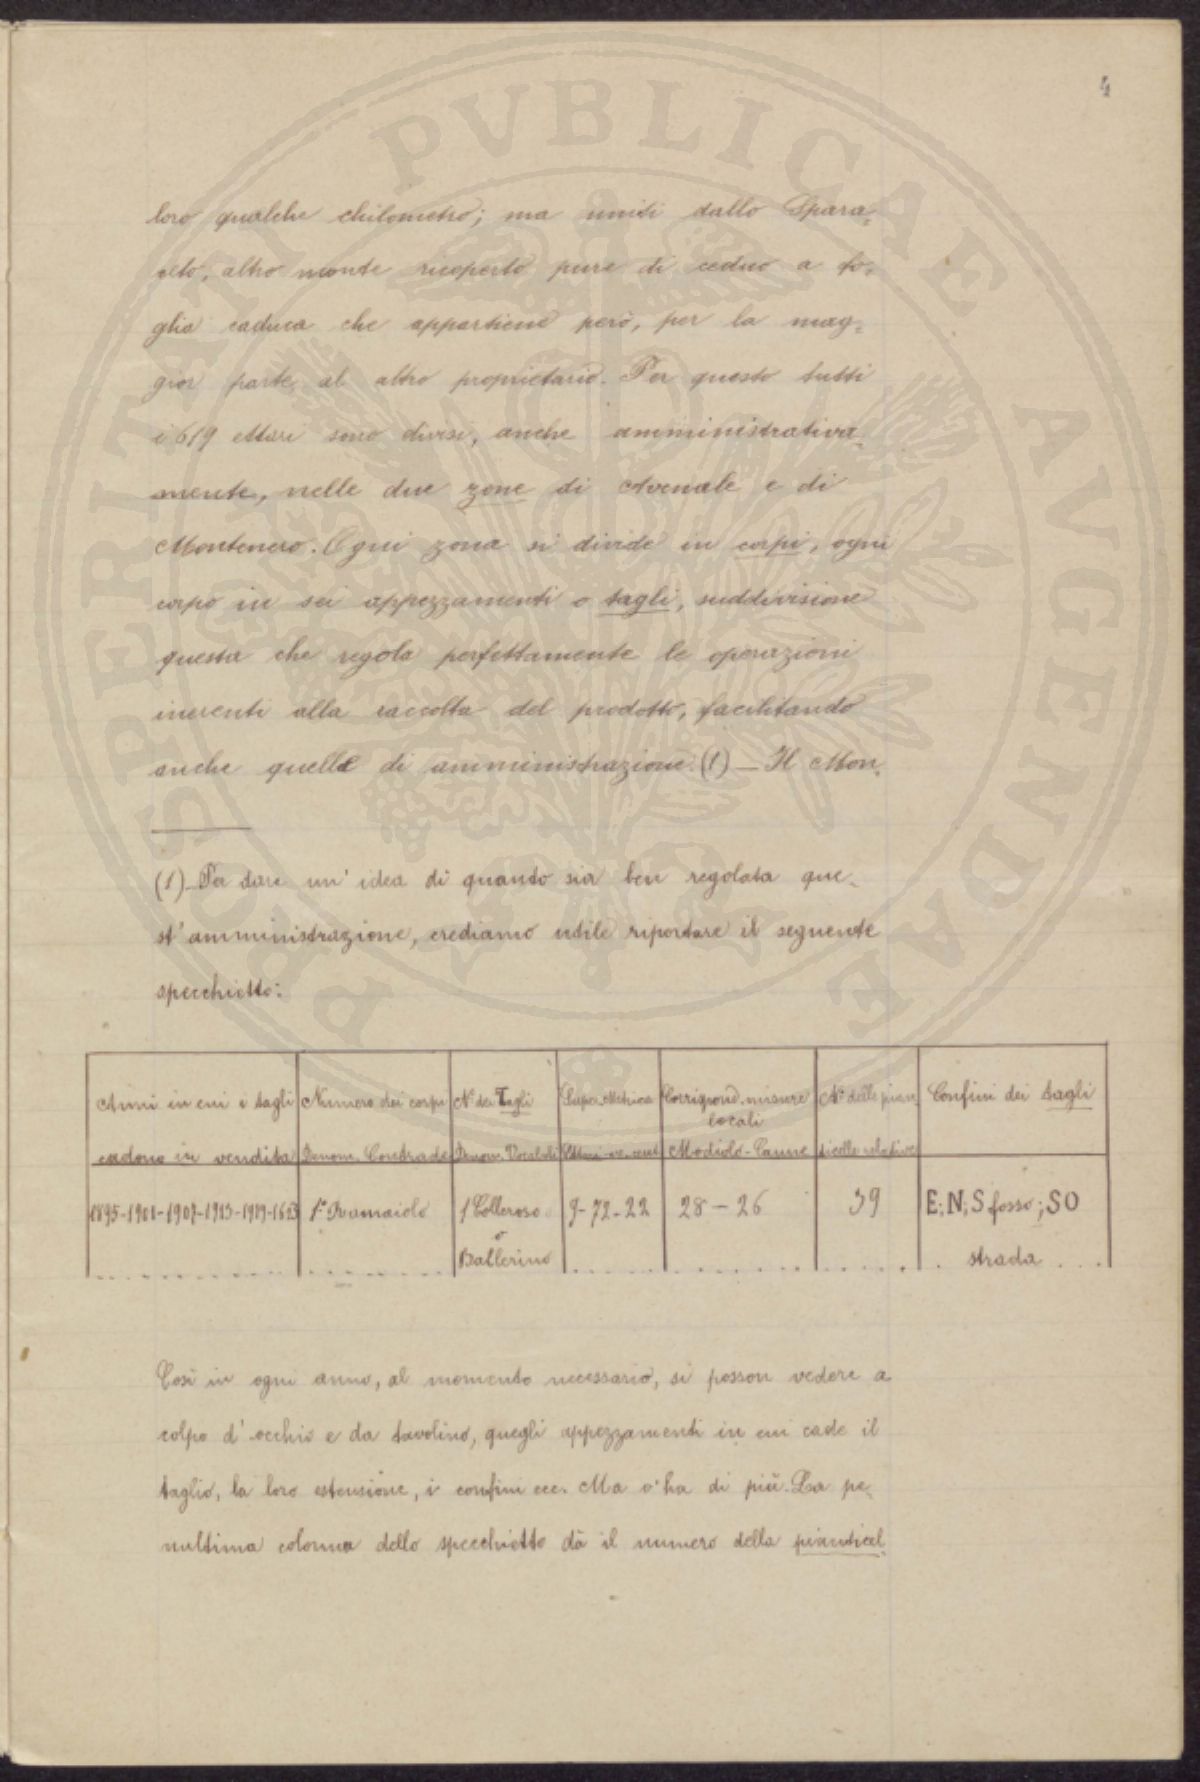 4
loro qualche chilometro; ma uniti dallo Spara=
neto, altro monte ricoperto pure di ceduo a fo=
glia caduca che appartiene però, per la mag=
gior parte al altro proprietario. Per questo tutti
i 619 ettari sono divisi, anche amministrativa=
mente, nelle due zone di Avenale e di
Montenero. Ogni zona si divide in corpi, ogni
corpo in sei appezzamenti o tagli, suddivisione
questa che regola perfettamente le operazioni
inerenti alla raccolta del prodotto, facilitando
anche quelle di amministrazione. (1) — Il Mon=
(1) — Per dare un' idea di quanto sia ben regolata que=
st' amministrazione, crediamo utile riportare il seguente
specchietto:
Anni in cui i tagli cadono in vendita
Numero dei corpi Denom. Contrade
N.° dei Tagli Denom. Vocaboli
Super. Metrica Ettari-are-cent
Corrispond. misure locali Modiolo - Canne
N.° delle pianticelle relative
Confini dei tagli
1895-1901-1907-1913-1919-1623
1° Ramaiolo
1 Colleroso o Ballerino
9-72-22
28 - 26
39
E; N; S fosso; SO strada
Così in ogni anno, al momento necessario, si posson vedere a
colpo d' occhio e da tavolino, quegli appezzamenti in cui cade il
taglio, la loro estensione, i confini ecc. Ma v' ha di più. La pe=
nultima colonna dello specchietto dà il numero della pianticel=
PROSPERITATI PVBLICAE AVGENDAE